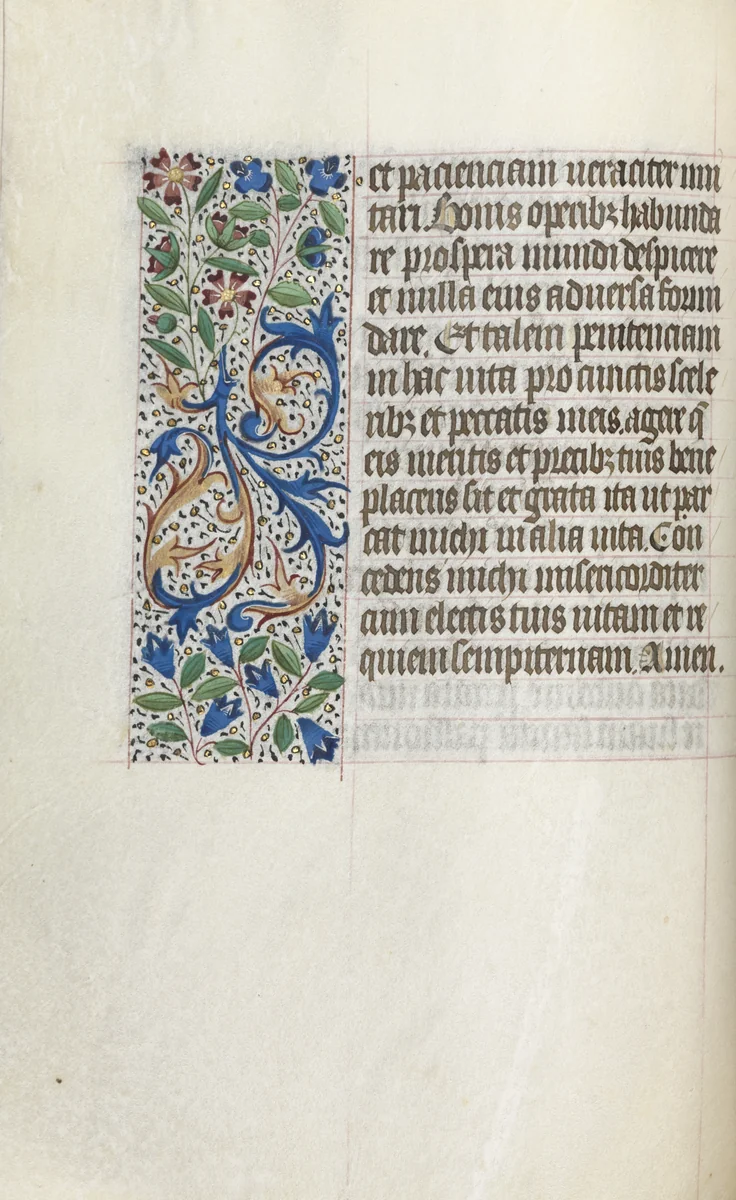 et pacienciam ueraciter imi
tari. Bonis operibꝫ habunda
re prospera mundi despicere
et nulla eius aduersa formi
dare. Et talem penitenciam
in hac uita pro cunctis scele
ribꝫ et peccatis meis. agere q̄
eis meritis et precibꝫ tuis bene
placens sit et grata ita ut par
cat michi in alia uita. Con
cedens michi misericorditer
cum electis tuis uitam et re
quiem sempiternam. Amen.